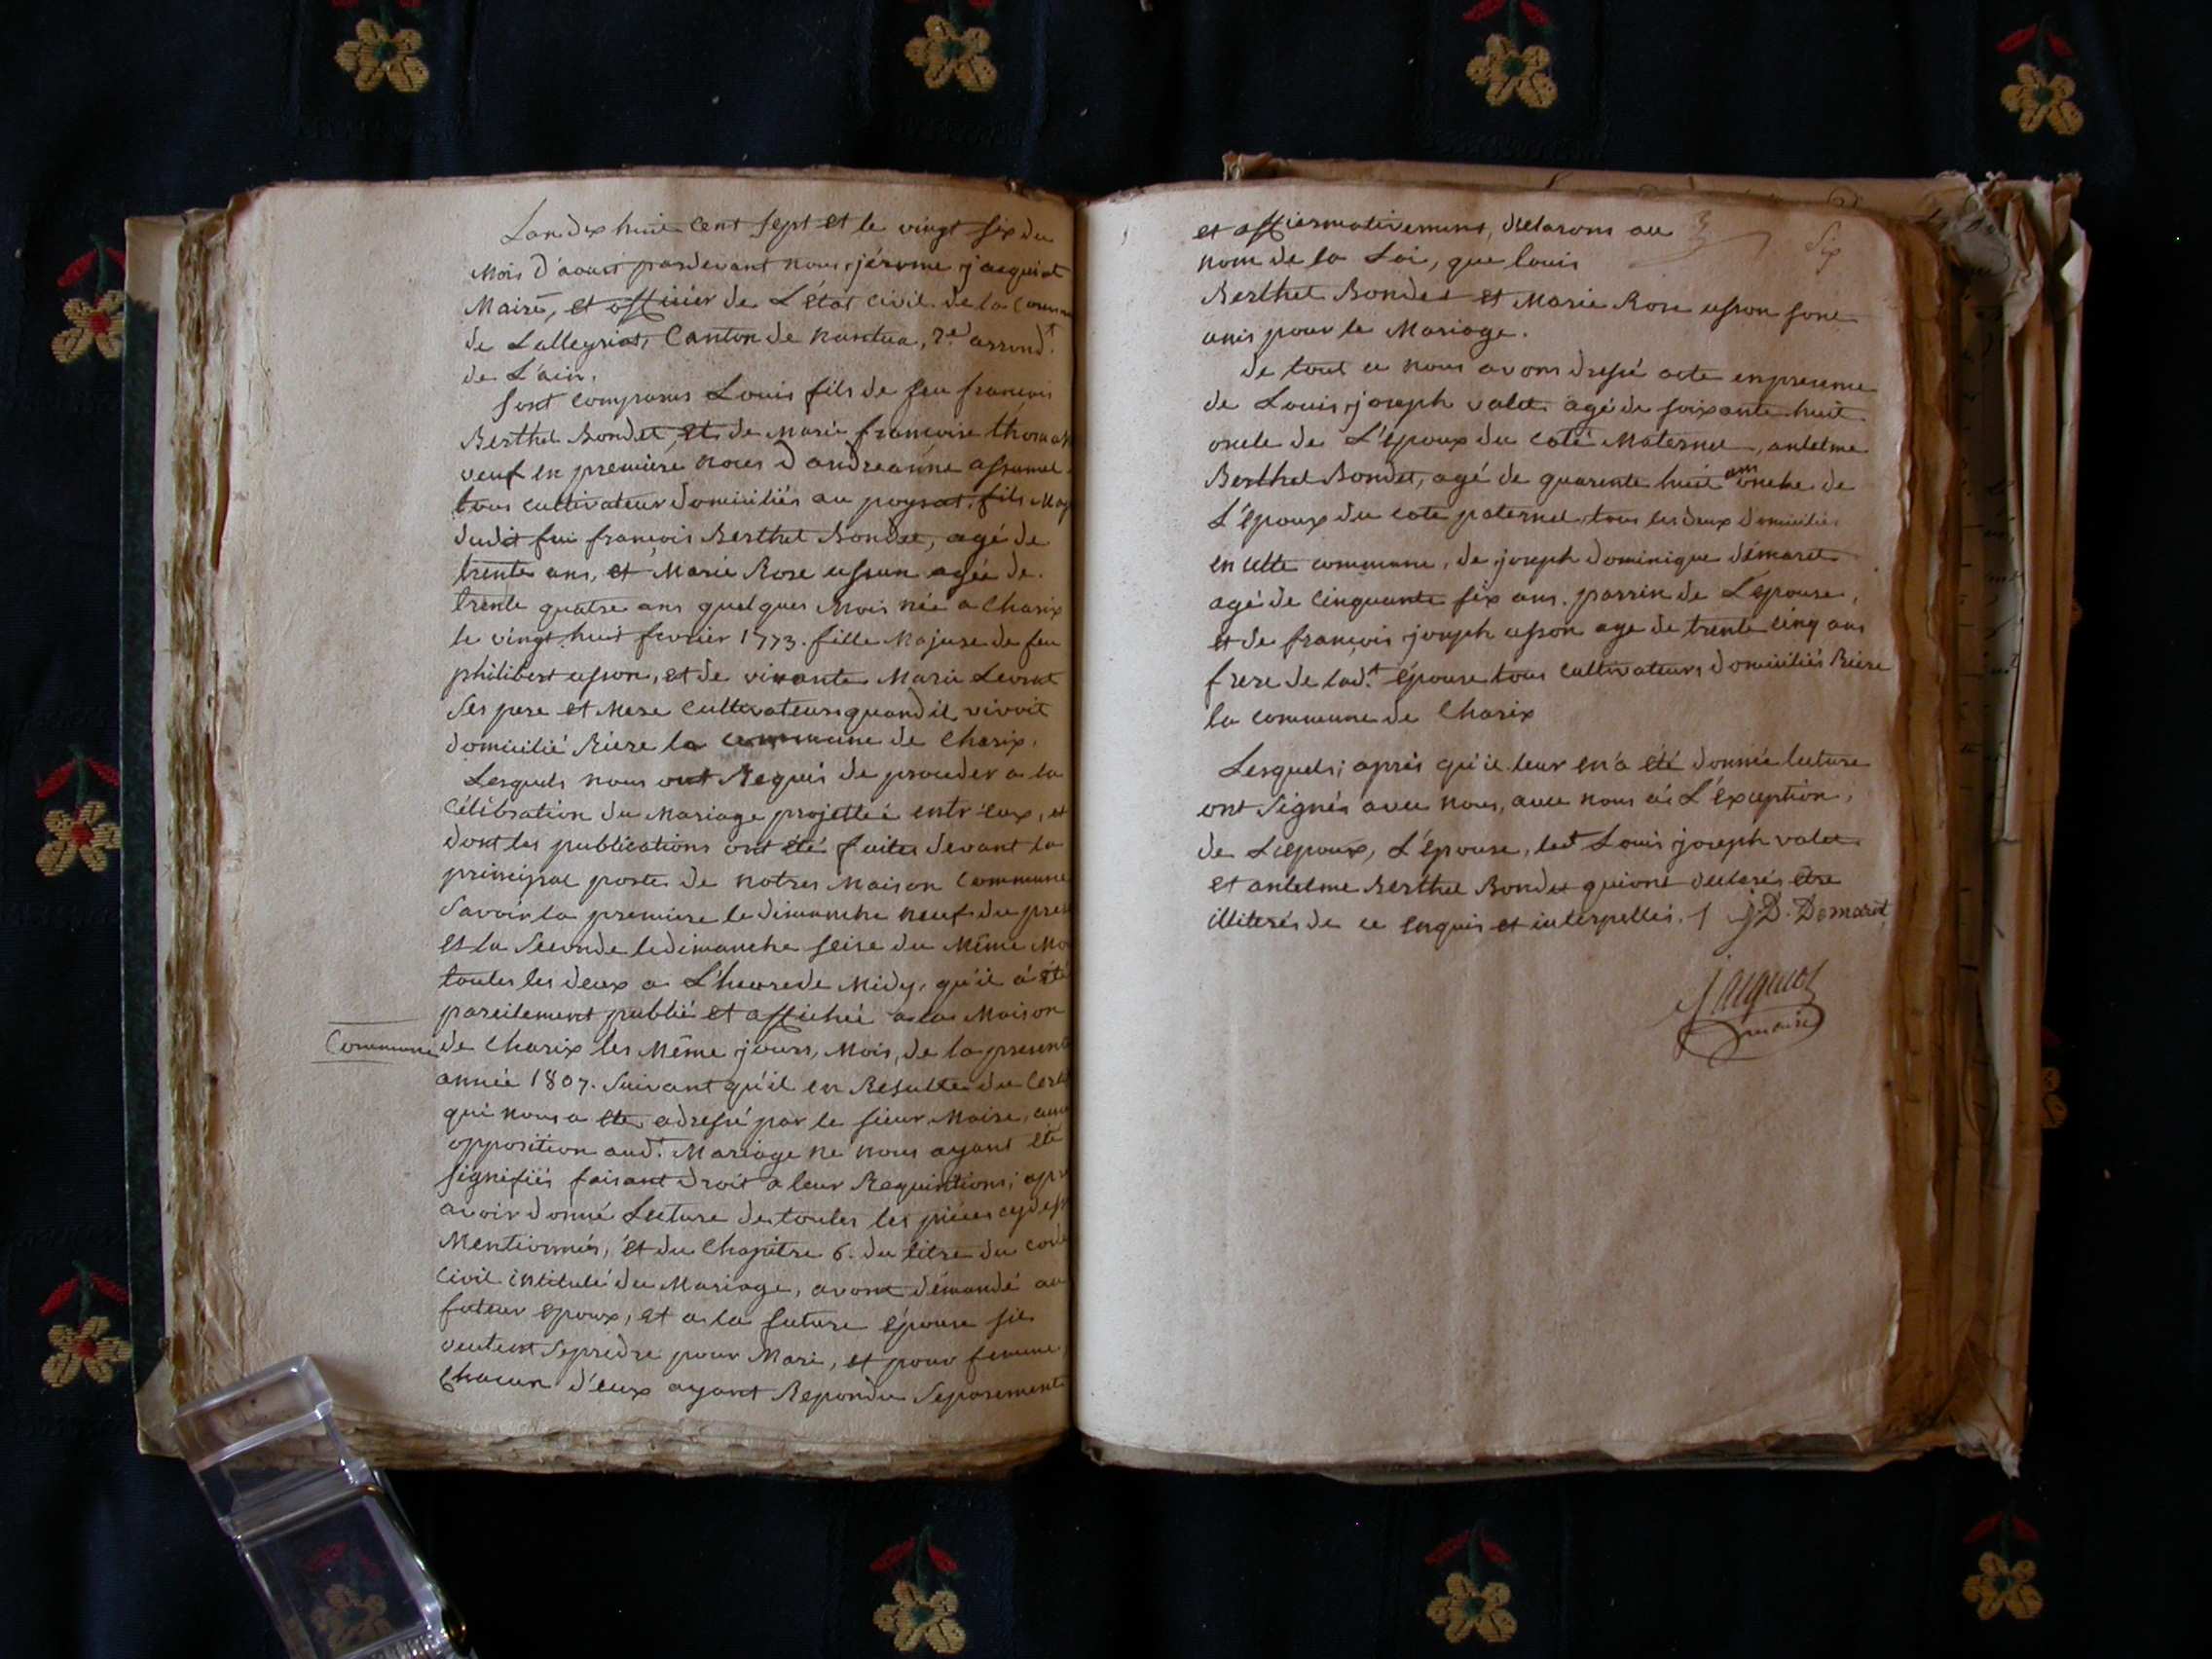 Lan dix huit cent sept et le vingt six du
Mois d'aoust pardevant nous jérome jacquiot
Maire, et officier de L'état civil de la Comm
de Lalleyriat, Canton de nantua, 2e arrond.t
de L'ain.
sont comparus Louis fils de feu françois
Berthet Bondet, et de Marie françoise thomas
veuf en premiere noces d andreanne assumel
tous cultivateur domiciliés au poysat, fils Maj
dudit feu françois Berthet Bondet, agé de
trente ans, et Marie Rose usson agée de
trente quatre ans quelques Mois née a Charix
le vingt huit fevrier 1773. fille Majure de feu
philibert usson, et de vivante Marie Levrat
ses pere et Mere Cultivateurs quand il vivoit
domicilié Riere la commune de Charix.
Lesquels nous ont Requis de proceder a la
Célébration du Mariage projetteé entr'eux, et
dont les publications ont été faites devant la
principal porte de notres Maison Commune
Savoir la premiere le dimanche neuf du pres
et la Seconde le dimanche seise du Même Mo
toutes les deux a L'heure de Midy, qu'il a été
pareilement publié et affichéé a la Maison
Commune de Charix les Même jours, Mois, de la presente
année 1807. Suivant qu'il en Resulte du Certi
qui nous a eté adressé par le sieur Maire, aucu
opposition aud.t Mariage ne nous ayant été
signifiés faisant droit a leur Requisitions; apr
avoir donné Lecture de toutes les piéces cydess
Mentionnés, et du Chapitre 6. du titre du code
Civil intitulé du Mariage, avons démandé au
futeur epoux, et a la future épouse sils
veulent se predre pour Mari, et pour femme,
Chacun d'eux ayant Repondu Separement
et affirmativement, declarons au
nom de la Loi, que louis
Berthet Bondet et Marie Rose usson sont
unis pour le Mariage.
de tout ce nous avons dressé acte en presence
de Louis joseph valet agé de soixante huit
oncle de L'époux du coté Maternel, antelme
Berthet Bondet, agé de quarente huit ans oncle de
L'époux du cote paternel tous les deux domiciliés
en cette commune, de joseph dominique démaret
agé de cinquante six ans. parrin de L'epouse,
et de françois joseph usson age de trente cinq ans
frere de lad.t épouse tous cultivateurs domiciliés Riere
la commune de Charix
Lesquels; après qu'il leur en a été donnée lecture
ont signés avec nous, avec nous à L'exception,
de L'époux, L'épouse, led.t Louis joseph valet
et antelme Berthet Bondet qui ont déclarés etre
illiterés de ce enquis et interpellés. J D. Démaret
Jacquiot
maire
Six